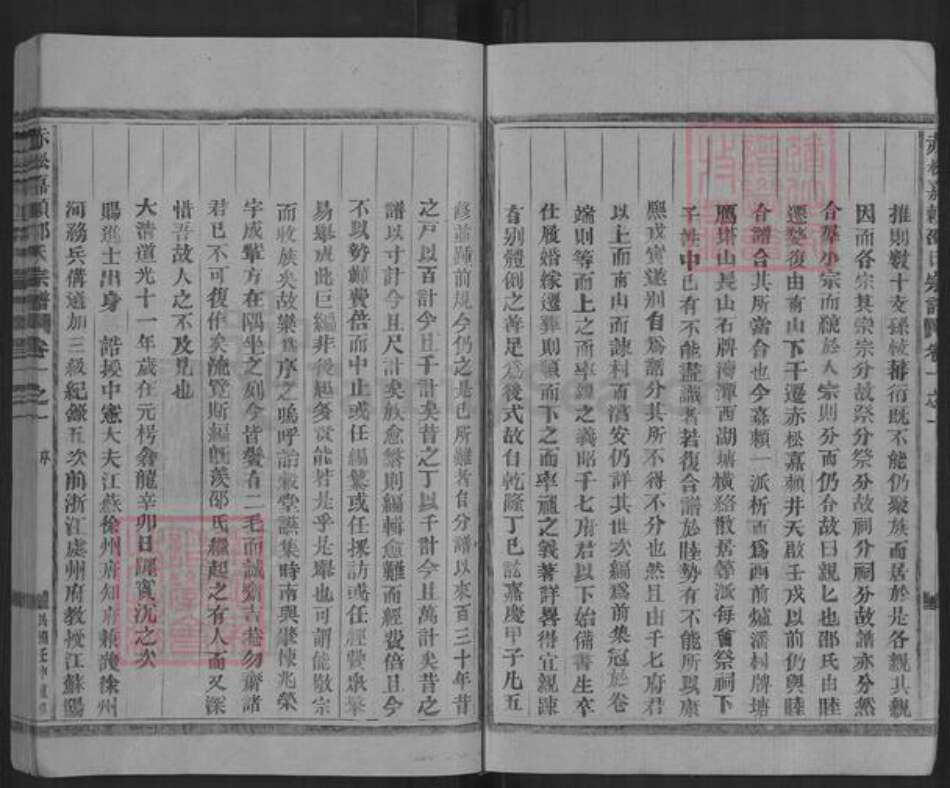 推則數十支孫枝蕃衍既不能仍聚族而居於是各親其親
因而各宗其宗宗分故祭分祭分故祠分祠分故譜亦分然
合羣小宗而統於大宗則分而仍合故曰親匕也邵氏由睦
遷婺復由南山下干遷赤松嘉頼井天啟壬戌以前仍與睦
合譜合其所當合也今嘉頼一派析而為西前爐潘村牌塘
鴈塔山長山石牌灣潭西湖塘橫路散居等派每會祭祠下
子姓中已有不能盡識者若復合譜於睦勢有不能所以康
熙戊寅遂別自為譜分其所不得不分也然且由千七府君
以上而南山而諌村而淯安仍詳其世次編為前集冠於卷
端則等而上之而率親之義昭千七府君以下始備書生卒
仕履婚嫁遷葬則順而下之而率祖之義著詳畧得宜親踈
有别體例之善足為後式故自乾隆丁巳訖嘉慶甲子凡五
修皆踵前規今仍之是已所難者自分譜以來百三十年昔
之戸以百計今且千計矣昔之丁以千計今且萬計矣昔之
譜以寸計今且尺計矣族愈繁則編輯愈難而經費倍且今
不以勢難費倍而中止或任編纂或任採訪或任經費衆擎
易舉成此巨編非後起多賢能若是乎是舉也可謂能敬宗
而收族矣故樂為序之嗚呼詒穀堂讌集時南輿肇悚兆榮
字成輩方在隅坐之列今皆鬢有二毛而誠齋吉菴勿齋諸
君已不可復作矣流覽斯編旣羨邵氏繼起之有人而又深
惜吾故人之不及見也
大清道光十一年歲在元枵龠龍辛卯日躔實沈之次
賜進士出身 誥授中憲大夫江蘇徐州府知府兼海徐州
河務兵備道加三級紀錄五次前浙江處州府教授江蘇陽